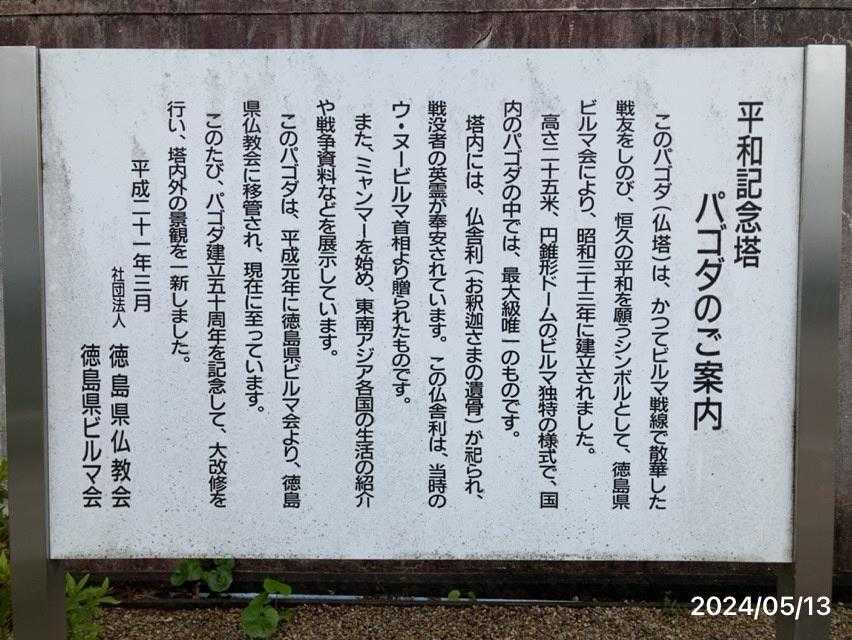 平和記念塔
パゴダのご案内
このパゴダ（仏塔）は、かつてビルマ戦線で散華した
戦友をしのび、恒久の平和を願うシンボルとして、徳島県
ビルマ会により、昭和三十三年に建立されました。
高さ二十五米、円錐形ドームのビルマ独特の様式で、国
内のパゴダの中では、最大級唯一のものです。
塔内には、仏舎利（お釈迦さまの遺骨）が祀られ、
戦没者の英霊が奉安されています。この仏舎利は、当時の
ウ・ヌービルマ首相より贈られたものです。
また、ミャンマーを始め、東南アジア各国の生活の紹介
や戦争資料などを展示しています。
このパゴダは、平成元年に徳島県ビルマ会より、徳島
県仏教会に移管され、現在に至っています。
このたび、パゴダ建立五十周年を記念して、大改修を
行い、塔内外の景観を一新しました。
平成二十一年三月
社団法人 徳島県仏教会
徳島県ビルマ会
2024/05/13